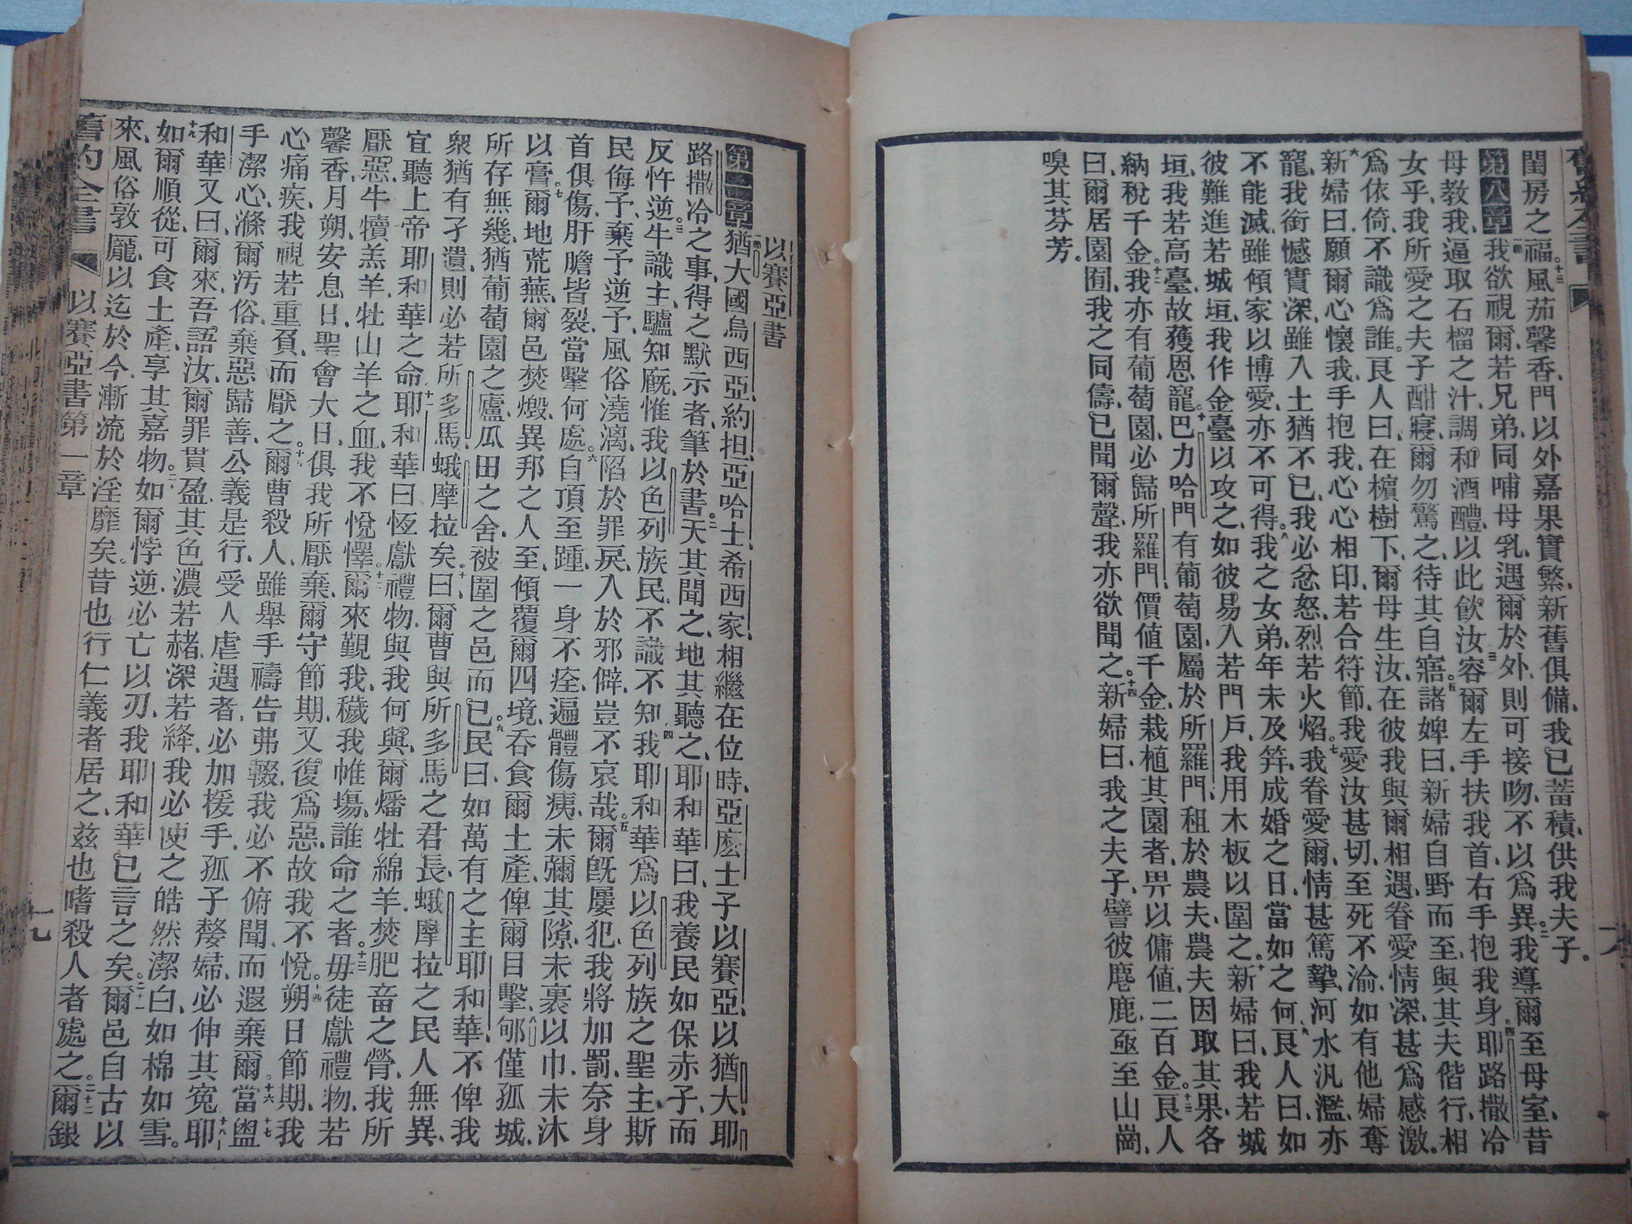 舊約全書
閨房之福、十三風茄馨香、門以外嘉果實繁、新舊俱備、我已蓄積、供我夫子。
第八章 我欲視爾、若兄弟、同哺母乳、遇爾於外、則可接吻、不以爲異。二我導爾至母室、昔
母教我、逼取石榴之汁、調和酒醴、以此飲汝、三容爾左手扶我首、右手抱我身、四耶路撒冷
女乎、我所愛之夫子酣寢、爾勿驚之、待其自寤、五諸婢曰、新婦自野而至、與其夫偕行、相
爲依倚、不識爲誰。良人曰、在檳樹下、爾母生汝、在彼我與爾相遇、眷愛情深、甚爲感激、
六新婦曰、願爾心懷我、手抱我、心心相印、若合符節、我愛汝甚切、至死不渝、如有他婦奪
寵、我銜憾實深、雖入土猶不已、我必忿怒、烈若火焰。七我眷愛爾、情甚篤摯、河水汎濫、亦
不能滅、雖傾家以博愛、亦不可得。八我之女弟、年未及笄、成婚之日、當如之何、九良人曰、如
彼難進若城垣、我作金臺以攻之、如彼易入若門戶、我用木板以圍之、十新婦曰、我若城
垣、我若高臺、故獲恩寵、十一巴力哈門有葡萄園、屬於所羅門、租於農夫、農夫因取其果、各
納稅千金、十二我亦有葡萄園、必歸所羅門、價値千金、栽植其園者、畀以傭値、二百金。十三良人
曰、爾居園囿、我之同儔、已聞爾聲、我亦欲聞之。十四新婦曰、我之夫子、譬彼麀鹿、亟至山崗、
嗅其芬芳。
十八
以賽亞書
第一章 猶大國烏西亞、約担、亞哈士、希西家、相繼在位時、亞麼士子以賽亞、以猶大、耶
路撒冷之事、得之默示者、筆於書、二天其聞之、地其聽之、耶和華曰、我養民如保赤子、而
反忤逆、三牛識主、驢知廐、惟我以色列族民、不識不知、四我耶和華爲以色列族之聖主、斯
民侮予、棄予逆子、風俗澆漓、陷於罪戾、入於邪僻、豈不哀哉。五爾旣屢犯、我將加罰、奈身
首俱傷、肝膽皆裂、當擊何處。六自頂至踵、一身不痊、遍體傷痍、未彌其隙、未裹以巾、未沐
以膏、七爾地荒蕪、爾邑焚燬、異邦之人至、傾覆爾四境、吞食爾土產、俾爾目擊、八郇僅孤城、
所存無幾、猶葡萄園之廬、瓜田之舍、被圍之邑而已、九民曰、如萬有之主耶和華、不俾我
衆猶有孑遺、則必若所多馬、蛾摩拉矣。十曰、爾曹與所多馬之君長、蛾摩拉之民人無異、
宜聽上帝耶和華之命、十一耶和華曰、恆獻禮物、與我何與、爾燔牡綿羊、焚肥畜之膋、我所
厭惡、牛犢羔羊、牡山羊之血、我不悅懌。十二爾來覲我、穢我帷塲、誰命之者、十三毋徒獻禮物、若
馨香、月朔、安息日、聖會大日、俱我所厭棄、爾守節期、又復爲惡、故我不悅。十四朔日節期、我
心痛疾、我視若重負、而厭之。十五爾曹殺人、雖舉手禱告弗輟、我必不俯聞、而遐棄爾。十六當盥
手潔心、滌爾汚俗、棄惡歸善、十七公義是行、受人虐遇者、必加援手、孤子嫠婦、必伸其寃、十八耶
和華又曰、爾來、吾語汝、爾罪貫盈、其色濃若赭、深若絳、我必使之皓然潔白、如棉如雪。
十九如爾順從、可食土產、享其嘉物。二十如爾悖逆、必亡以刃、我耶和華已言之矣。二十一爾邑自古以
來、風俗敦龐、以迄於今、漸流於淫靡矣。昔也行仁義者居之、茲也嗜殺人者處之。二十二爾銀
舊約全書 以賽亞書第一章
十九